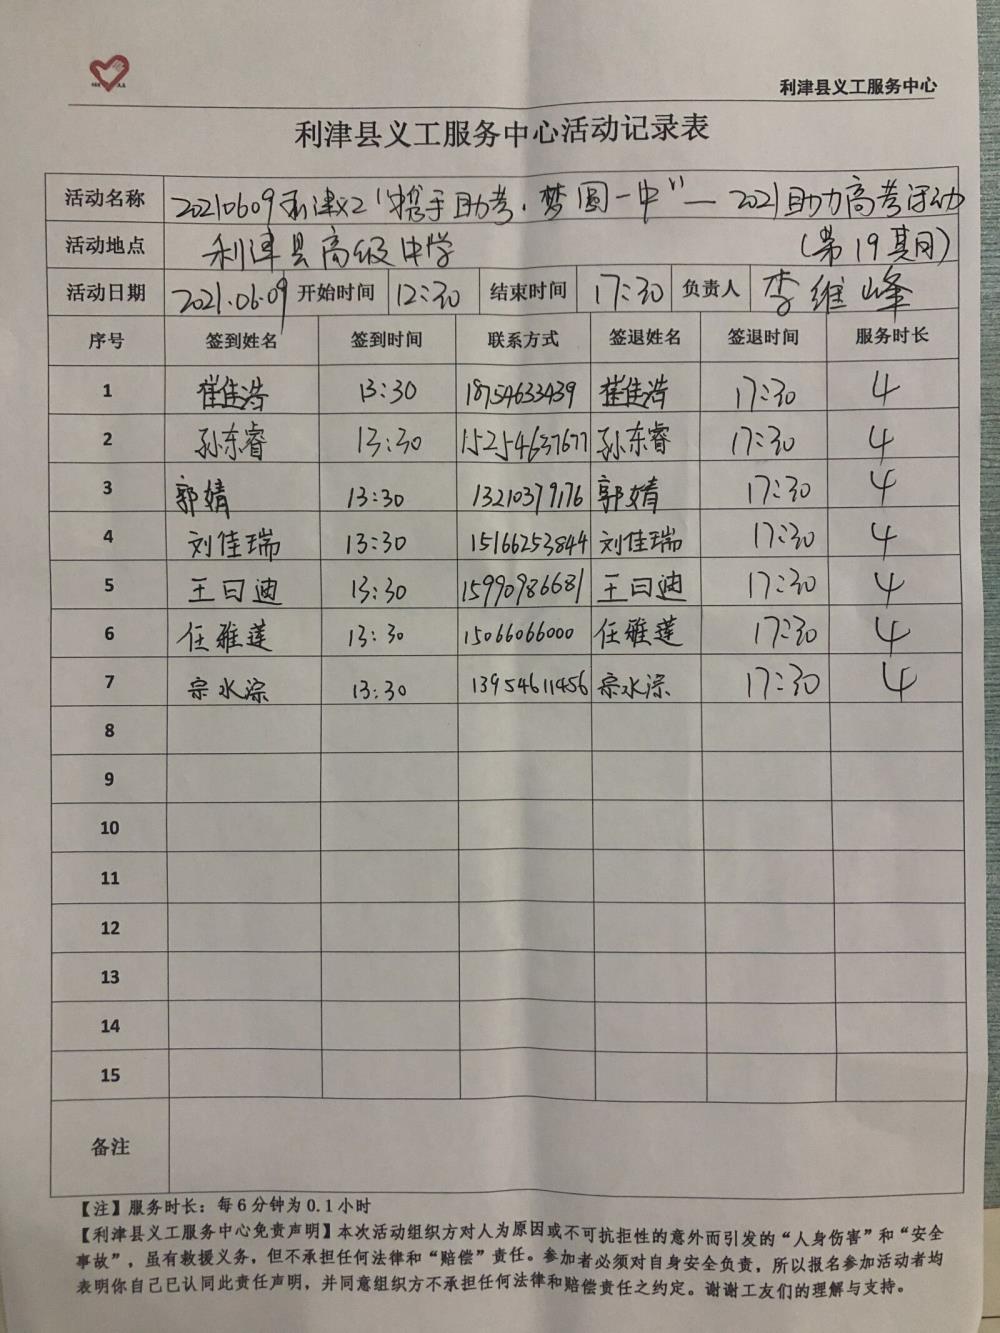 利津县义工服务中心
利津县义工服务中心活动记录表
活动名称 20210609利津义工“携手助考，梦圆一中”—2021助力高考活动
活动地点 利津县高级中学 (第19期)
活动日期 2021.06.09 开始时间 12:30 结束时间 17:30 负责人 李维峰
序号 签到姓名 签到时间 联系方式 签退姓名 签退时间 服务时长
1 崔佳浩 13:30 18754633439 崔佳浩 17:30 4
2 孙东睿 13:30 15254637677 孙东睿 17:30 4
3 郭婧 13:30 13210379176 郭婧 17:30 4
4 刘佳瑞 13:30 15166253844 刘佳瑞 17:30 4
5 王曰迪 13:30 15990986681 王曰迪 17:30 4
6 任雅莲 13:30 15066066000 任雅莲 17:30 4
7 宗水淙 13:30 13954611456 宗水淙 17:30 4
8
9
10
11
12
13
14
15
备注
【注】服务时长：每6分钟为0.1小时
【利津县义工服务中心免责声明】本次活动组织方对人为原因或不可抗拒性的意外而引发的“人身伤害”和“安全
事故”，虽有救援义务，但不承担任何法律和“赔偿”责任。参加者必须对自身安全负责，所以报名参加活动者均
表明你自己已认同此责任声明，并同意组织方不承担任何法律和赔偿责任之约定。谢谢工友们的理解与支持。